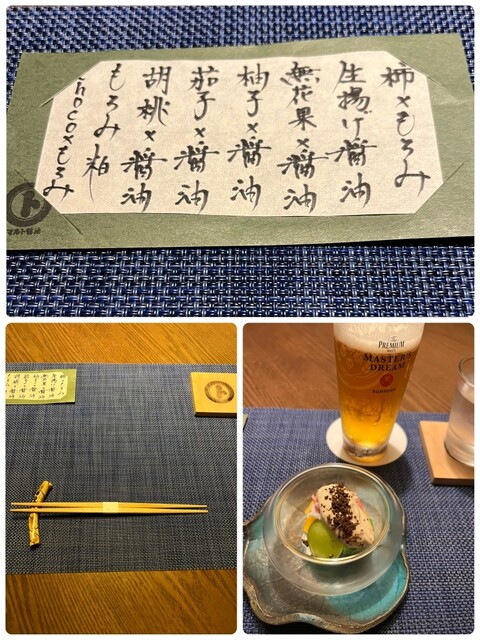 柿×もろみ
生揚げ醤油
無花果×醤油
柚子×醤油
茄子×醤油
胡桃×醤油
もろみ 粕
choco×もろみ
ト
マルト醤油
The
PREMIUM
MALT'S
MASTER'S
DREAM
SUNTORY